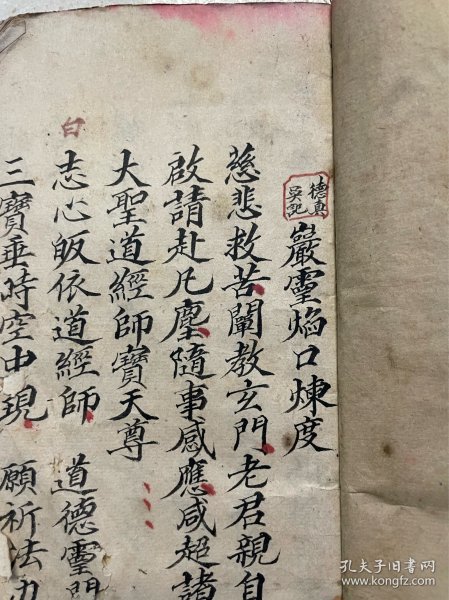 德真
吳記
嚴靈焰口煉度
慈悲救苦闡教玄門老君親自
啟請赴凡塵隨事感應咸超諸
大聖道經師寶天尊
白
志心皈依道經師 道德靈門
三寶垂時空中現 願祈法力
孔夫子旧书网
book.kongfz.com